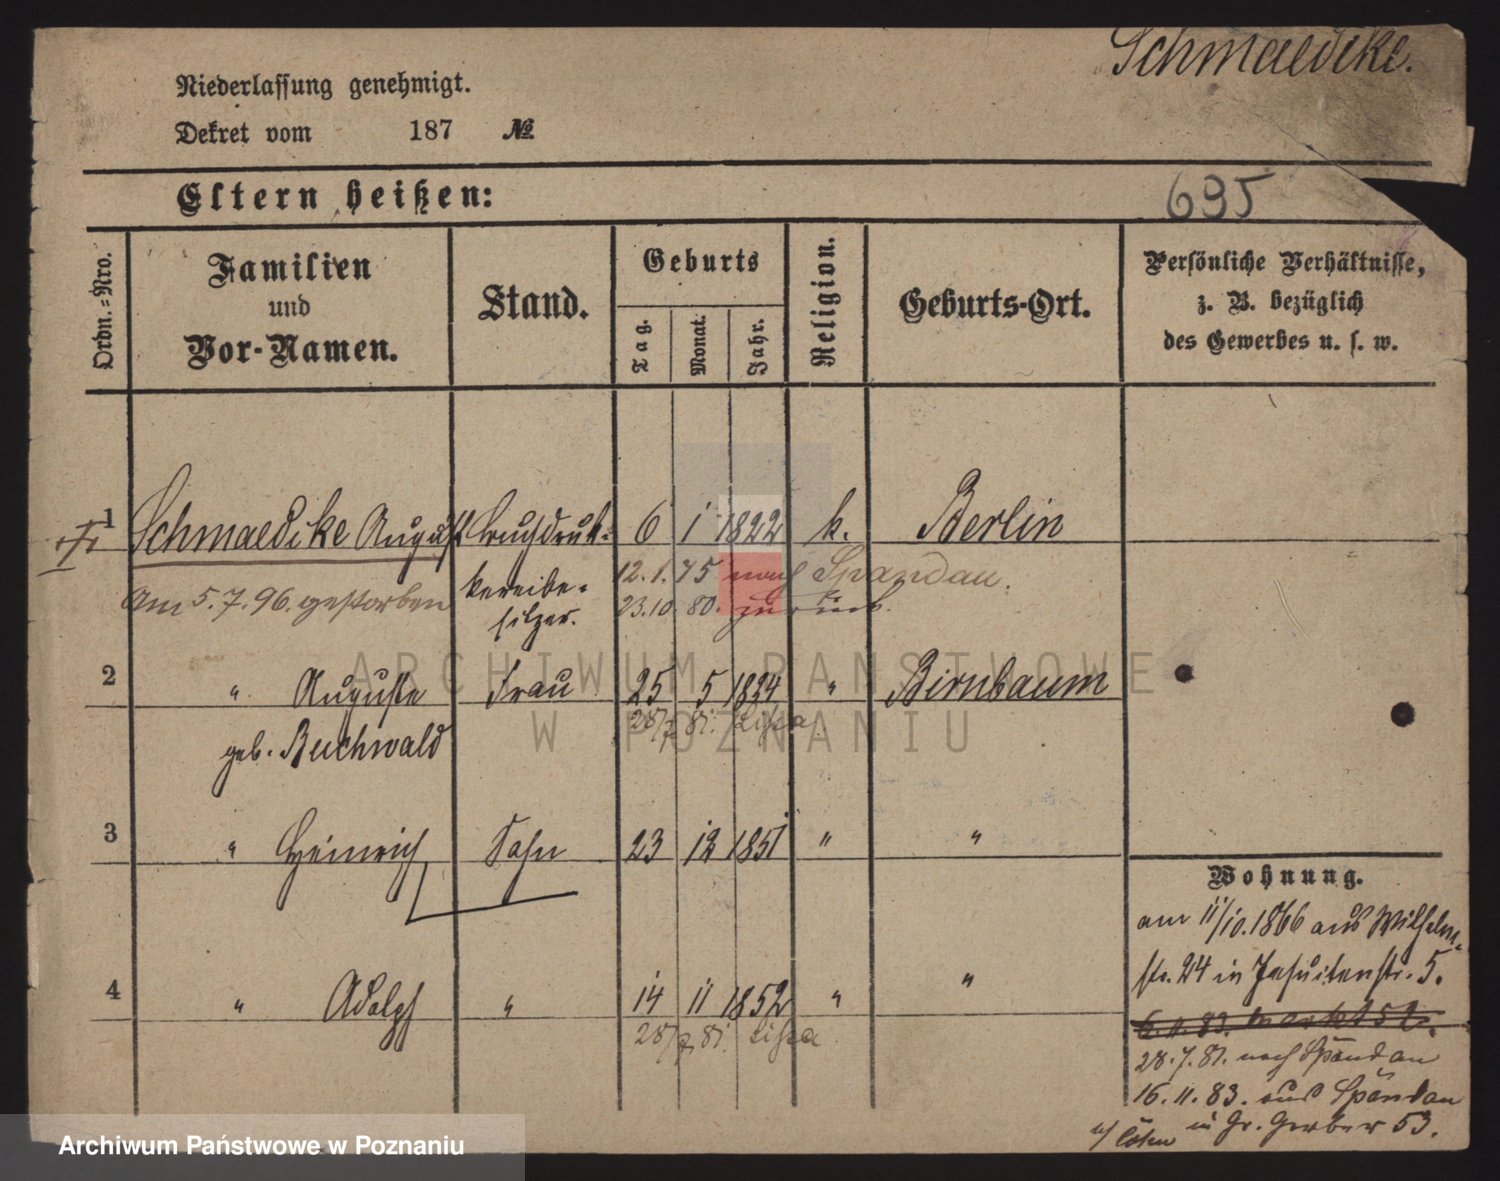 Schmaedicke.
Niederlassung genehmigt.
Dekret vom 187 №
Eltern heißen:
695
Ordn.=Nro.
Familien
und
Vor-Namen.
Stand.
Geburts
Tag.
Monat.
Jahr.
Religion.
Geburts-Ort.
Persönliche Verhältnisse,
z. B. bezüglich
des Gewerbes u. s. w.
1 Schmaedicke August Buchdruk= 6 1 1822 k. Berlin
kereibe=
sitzer.
12.1.75 nach Spandau.
Am 5.7.96. gestorben
23.10.80. zurück.
2 " Auguste Frau 25 5 1834 " Birnbaum
geb. Buchwald
28/7 81. Lissa
3 " Heinrich Sohn 23 12 1851 " "
4 " Adolph " 14 11 1852 " "
28/7 81. Lissa
Wohnung.
am 11/10.1866 aus Wilhelm
str. 24 in Jesuitenstr. 5.
Markt 52.
28.7.81. nach Spandau
16.11.83. aus Spandau
in Gr. Gerber 53.
ARCHIWUM PAŃSTWOWE
W POZNANIU
Archiwum Państwowe w Poznaniu